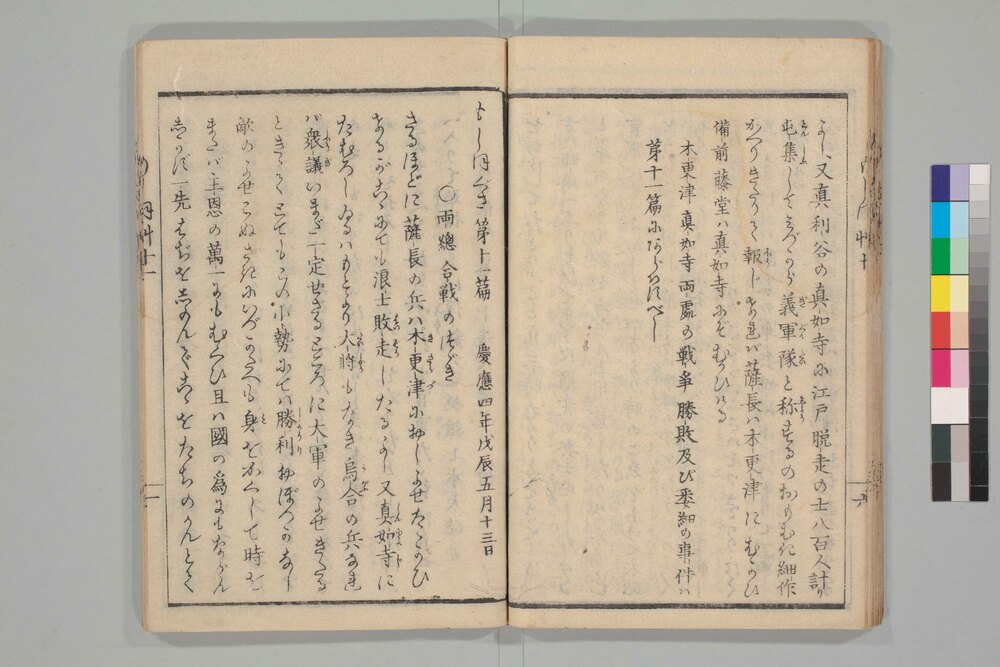 よし、又真利谷の真如寺に江戸脱走の士八百人計り
屯集してみづから義軍隊と称するのおもむき細作
かへりきたりて報じければ薩長ハ木更津にむかひ
備前藤堂ハ真如寺にぞむかひける
木更津真如寺両處の戦争勝敗及び委細の事件ハ
第十一篇にあらはすべし
もしほぐさ第十一篇 慶應四年戊辰五月十三日
〇両總合戦のつゞき
さるほどに薩長の兵ハ木更津におしよせたゝかひ
けるがこゝにても浪士敗走したるよし又真如寺に
たむろしゐるハもとより大将もなき烏合の兵なれ
バ衆議いまだ一定せざるところに大軍のよせきたる
ときゝてとてもこの小勢にてハ勝利おぼつかなし
敵のよせこぬさきにいづこへも身をかくして時を
またバ主恩の萬一にもむくひ且ハ國の為にもならん
しかず一先はぢをしのんでこゝをたちのかんとて